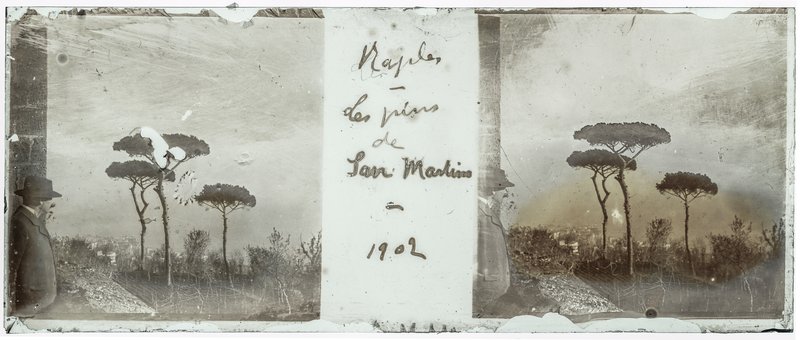 Naples
-
les pins
de
San Martino
-
1902